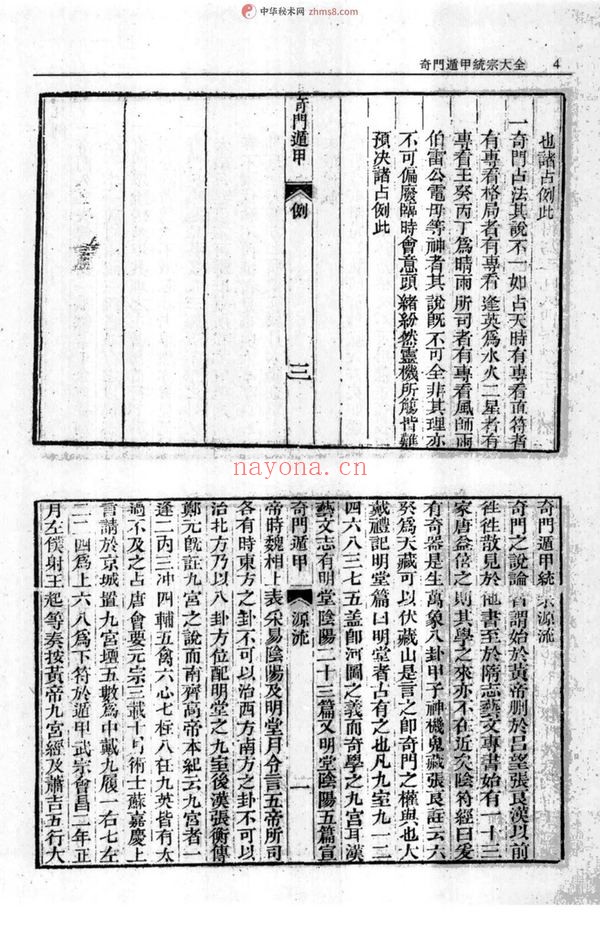 中华秘术网
zhms8.com
奇門遁甲統宗大全 4
也諸占例此
一奇門占法其說不一如占天時有專看直符者
有專看格局者有專看 逢英爲水火二星者有
專看壬癸丙丁爲晴雨所司者有專看風師雨
伯雷公電母等神者其說旣不可全非其理亦
不可偏廢臨時會意頭緒紛然靈機所觸皆難
預决諸占例此
奇門遁甲 例 三
奇門遁甲統宗源流
奇門之說論者謂始於黃帝删於呂望張良漢以前
徃徃散見於他書至於隋志藝文專書始有一十三
家唐益倍之則其學之來亦不在近矣陰符經曰爰
有奇器是生萬象八卦甲子神機鬼藏張良註云六
癸爲天藏可以伏藏山是言之卽奇門之權與也大
戴禮記明堂篇曰明堂者占有之也凡九室九一二
四六八三七五葢卽河圖之義而奇學之九宮耳漢
藝文志有明堂陰陽二十三篇又明堂陰陽五篇宣
奇門遁甲 源流 一
帝時魏相上表采易陰陽及明堂月令言五帝所司
各有時東方之卦不可以治西方南方之卦不可以
治北方乃以八卦方位配明堂之九室後漢張衡傳
鄭元旣註九宮之說而南齊高帝本紀云九宮者一
逢二丙三冲四輔五禽六心七柱八任九英皆有太
過不及之占唐會要元宗三載十月術士蘇嘉慶上
言請於京城置九宮壇五數爲中戴九履一右七左
二一四爲上六八爲下符於遁甲武宗會昌二年正
月左僕射王起等奏按黃帝九宮經及蕭吉五行大
nayona.cn